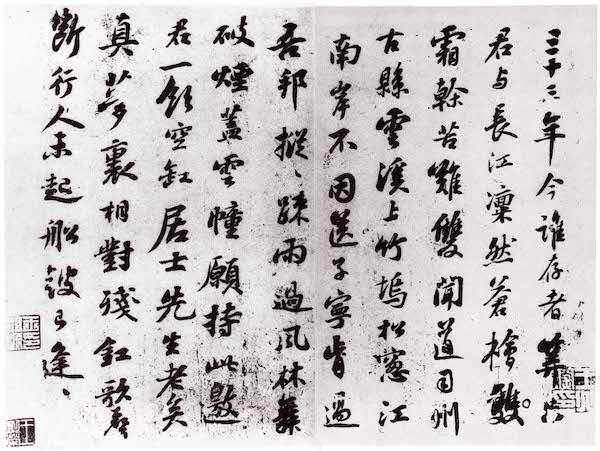 三十三年今誰存者算只
君与長江凜然蒼檜雙
霜榦苦難雙聞道司州
古縣雲溪上竹塢松窻江
南岸不因送子寧肯過
吾邦摐〻踈雨過風林舞
破煙蓋雲幢願持此邀
君一飲空缸居士先生老矣
真夢裏相對殘釭歌聲
断行人未起船鼓已逢〻